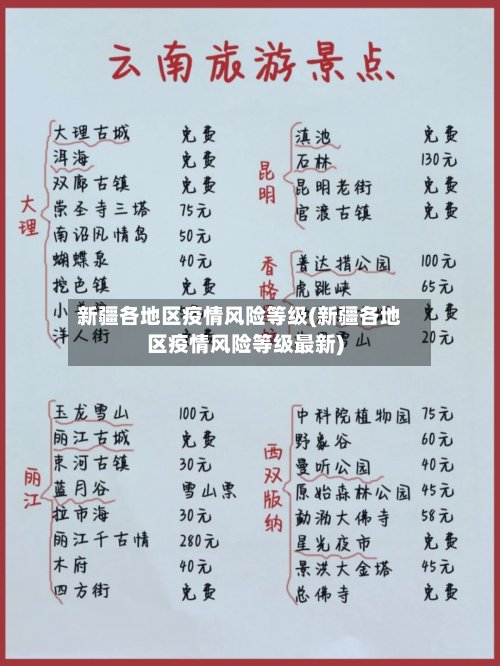 云南旅游景点
大理
大理古城 免费
洱海 免费
双廊古镇 免费
崇圣寺三塔 75元
南诏风情岛 50元
蝴蝶泉 40元
挖色镇 免费
小
洋人街 免费
昆明
滇池 免费
石林 130元
昆明老街 免费
官渡古镇 免费
香格
普达措公园 100元
虎跳峡 65元
雪山 20元
新疆各地区疫情风险等级(新疆各地
区疫情风险等级最新)
丽江
玉龙雪山 100元
丽江古城 免费
束河古镇 30元
蓝月谷 雪山票
拉市海 30元
丽江千古情 280元
木府 40元
四方街 免费
西双版纳
中科院植物园 75元
野象谷 60元
曼听公园 40元
原始森林公园 45元
勐泐大佛寺 58元
星光夜市 免费
景洪大金塔 45元
总佛寺 免费